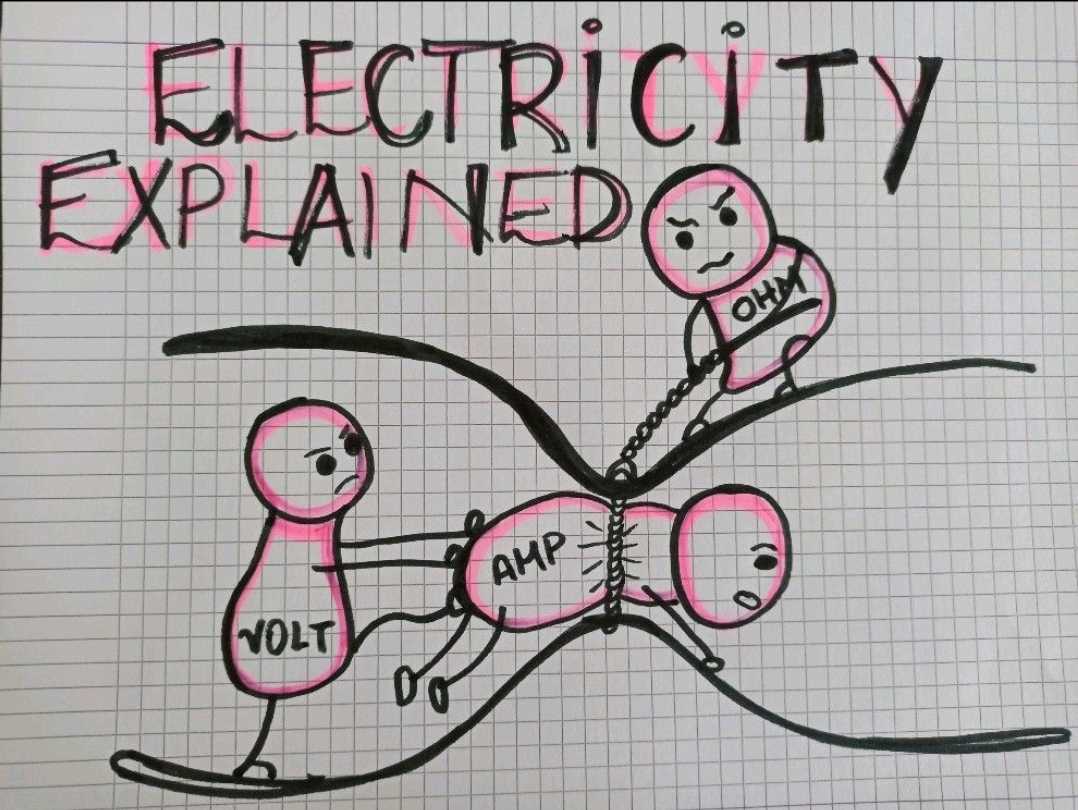 ELECTRiCiTY
EXPLAINED
OHM
AMP
VOLT